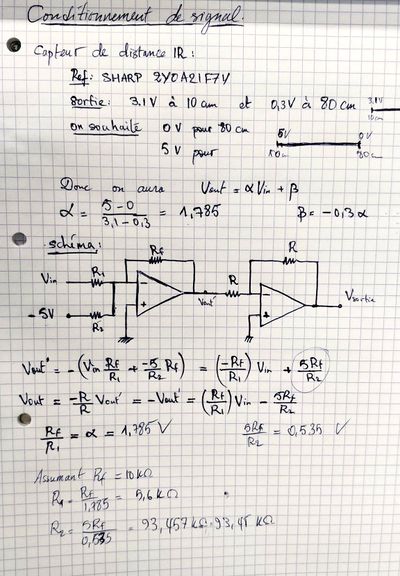 Conditionnement de signal.
Capteur de distance IR :
Ref: SHARP 2Y0A21F7V
Sortie: 3.1V à 10 cm et 0,3V à 80 cm
3.1V
10cm
on souhaite 0V pour 80 cm
5V pour
5V 0V
10cm 80cm
Donc on aura Vout = αVin + β
α = (5 - 0) / (3,1 - 0,3) = 1,785 β = -0,3α
schéma:
Rf R
Vin R1 - + Vout' R - + Vsortie
-5V R2
Vout' = -(Vin Rf/R1 + -5/R2 Rf) = (-Rf/R1) Vin + 5Rf/R2
Vout = -R/R Vout' = -Vout' = (Rf/R1) Vin - 5Rf/R2
Rf/R1 = α = 1,785 V 5Rf/R2 = 0,535 V
Assumant Rf = 10 kΩ
R1 = Rf/1,785 = 5,6 kΩ
R2 = 5Rf/0,535 = 93,457 kΩ 93,45 kΩ